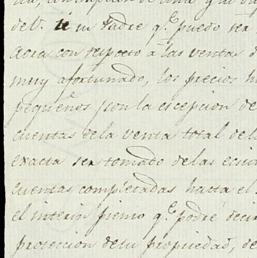 de V. su Padre q.e puedo ser
aora con respeto à las ventas d
muy afortunado, los precios h
pequeños (con la escepcion de
cuentas dela venta total del
exacta ser tomado delas
cuentas completadas hasta el
el interin pienso q.e podré deci
proteccion detu propiedad, de